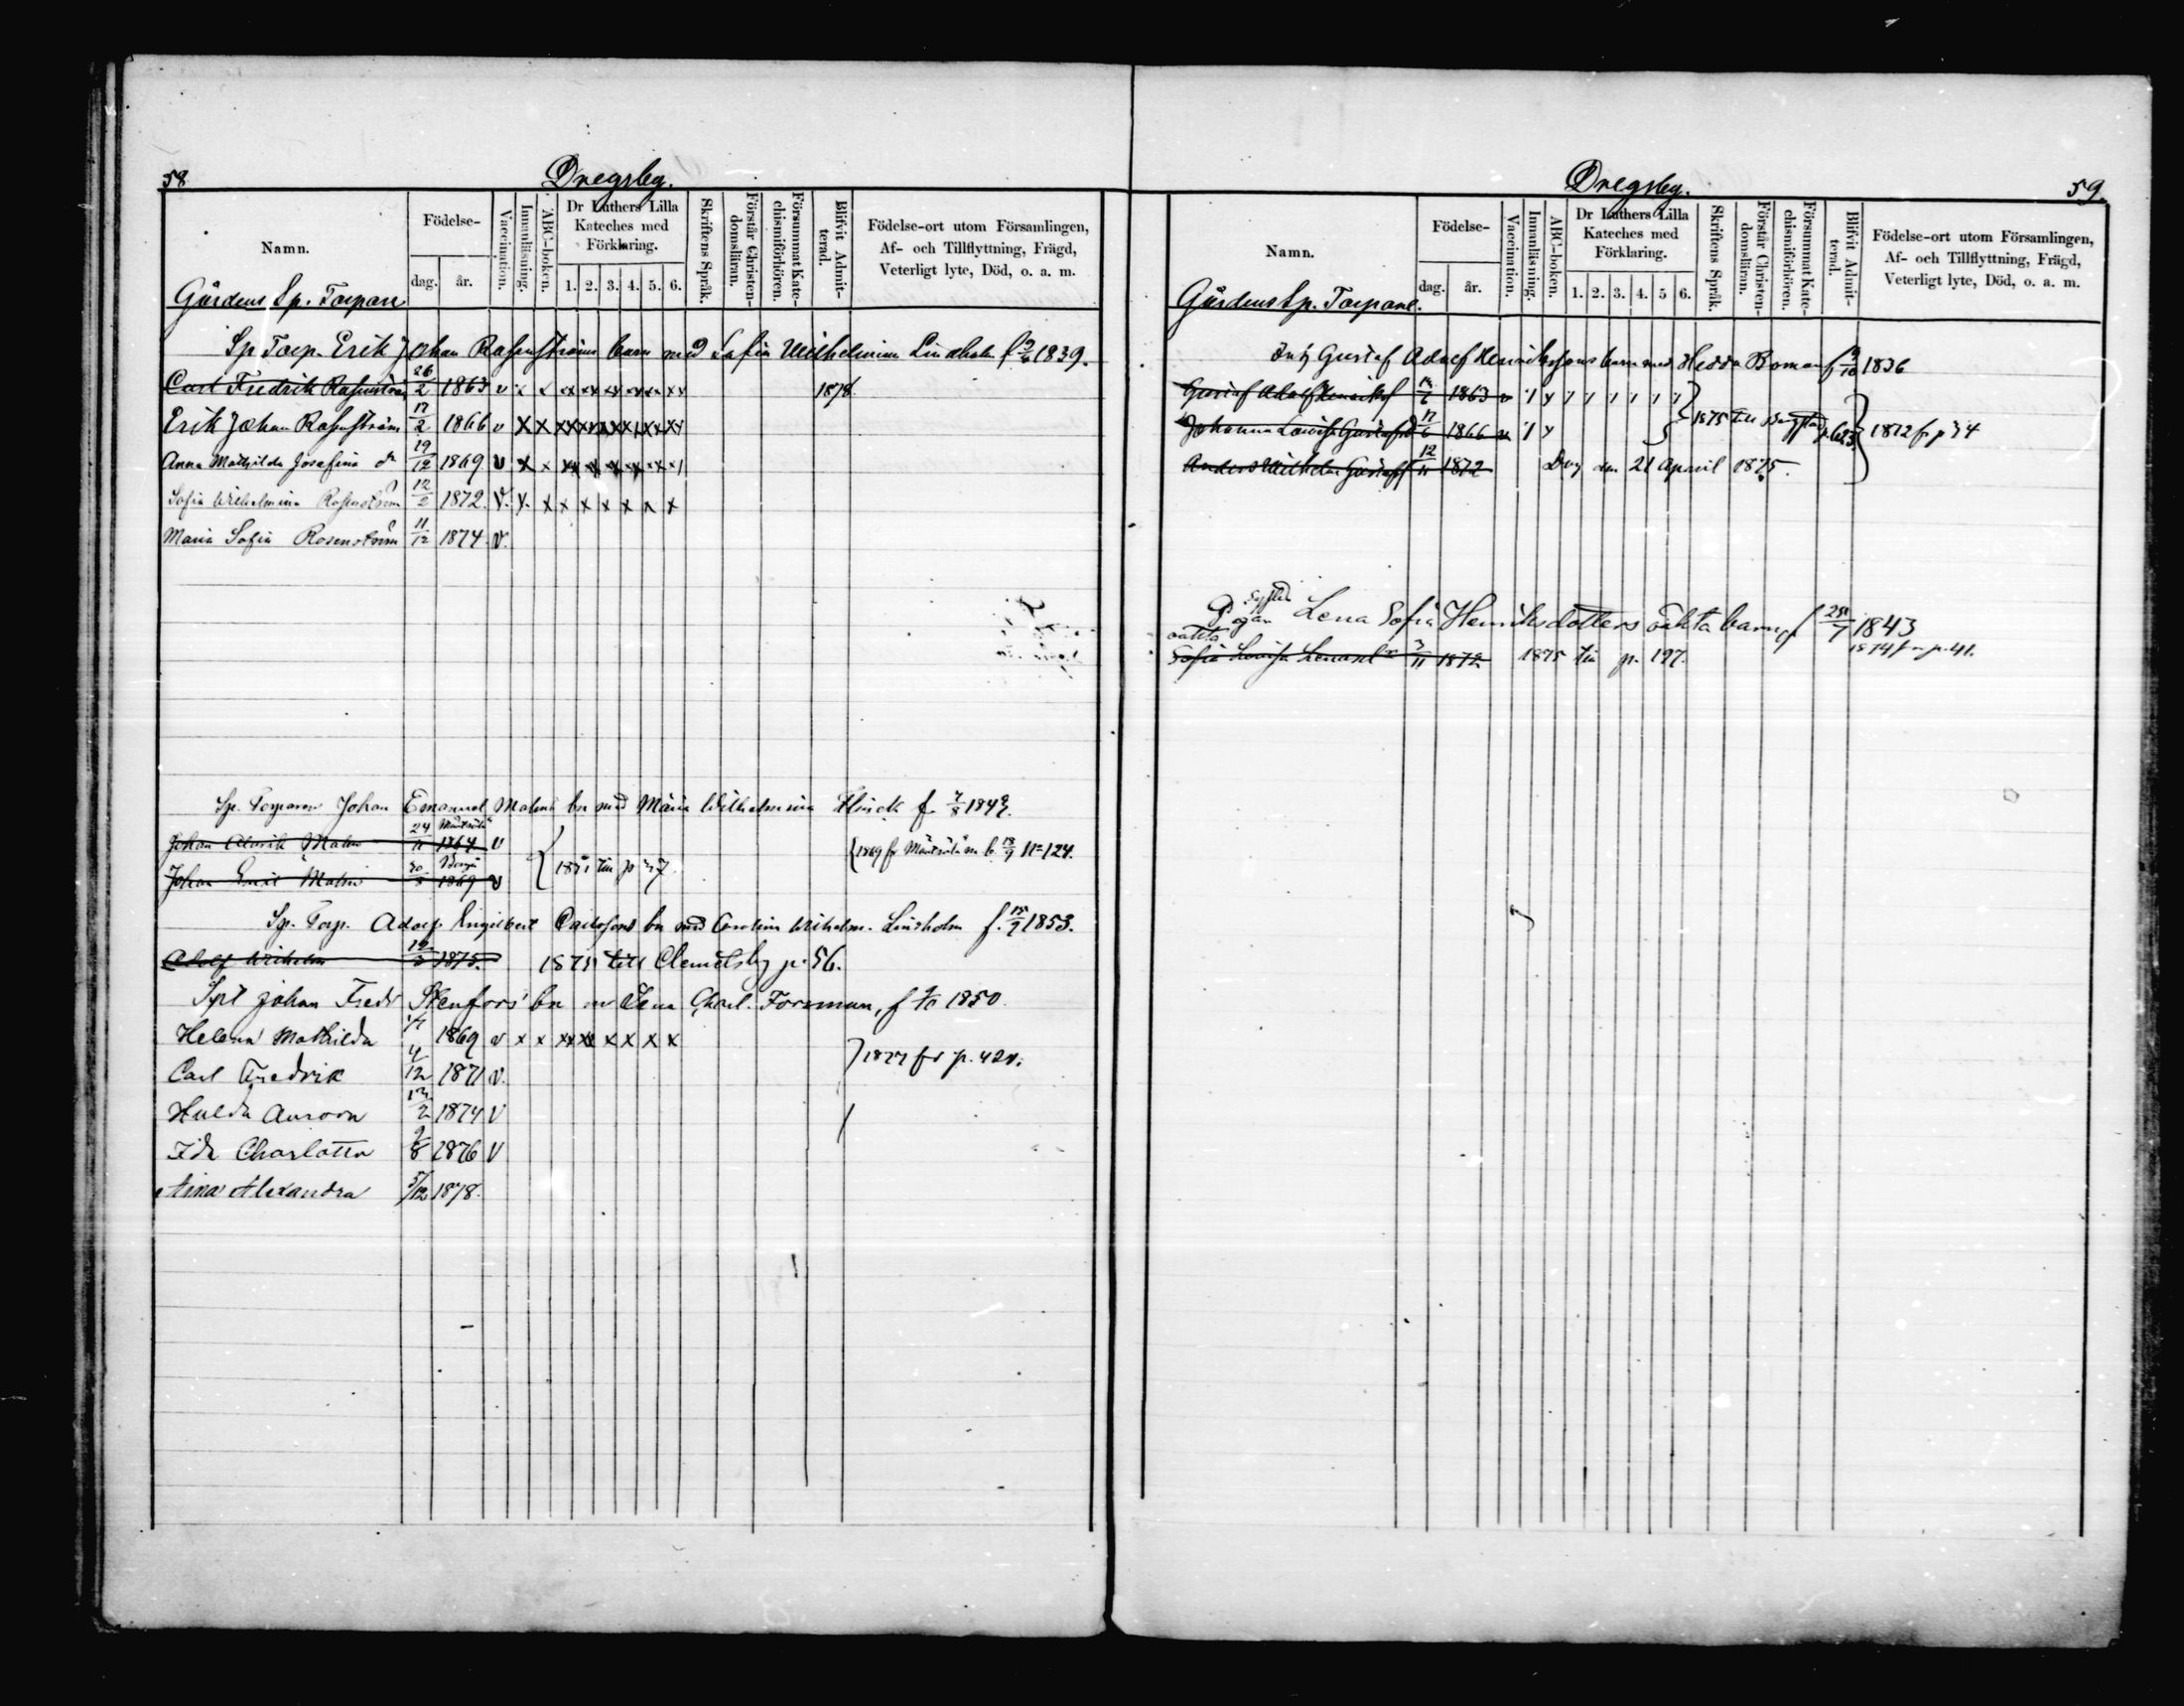 58 Dregsby.
Namn. Födelse- dag. år. Vaccination. Innanläsning. ABC-boken. Dr Luthers Lilla Kateches med Förklaring. 1. 2. 3. 4. 5. 6. Skriftens Språk. Förstår Christen-domsläran. Försummat Kate-chismiförhören. Blifvit Admit-terad. Födelse-ort utom Församlingen, Af- och Tillflyttning, Frägd, Veterligt lyte, Död, o. a. m.
Gårdens Sp. Torpare
Sp Torp. Erik Johan Rosenströms barn med Sofia Wilhelmina Lindholm f 1839.
Carl Fredrik Rosenström 26/2 1863 v x x xx xx xx xx xx xx 1878.
Erik Johan Rosenström 17/2 1866 v x x xx xx xx xx xx xx
Anna Mathilda Josefina dr 19/12 1869 v x x xx xx x x xx x/
Sofia Wilhelmina Rosenström 12/2 1872. v. x. x x x x x x x
Maria Sofia Rosenström 11/12 1874. v.
Sp. Torparen Johan Emanuel Malms bn med Maria Wilhelmina Flinck f. 7/8 1842.
Johan Alarik Malm 24/11 Mäntsälä 1864 v
{1869 fr Mäntsälä m. b. 18/9 No 124.
Johan Emil Malm 30/8 Borgå 1869 v
Sp. Torp. Adolf Engelbert Carlssons bn med Carolina Wilhelm. Lindholm f. 15/9 1853.
Adolf Wilhelm 12/2 1875. 1875 till Clemetsby p. 56.
Spt Johan Fredr Stenfors' bn m Lena Charl. Forsman, f 9/10 1850.
Helena Mathilda 1869 v x x xx xx x x x x
Carl Fredrik 4/12 1871 v. } 1877 fr p. 421.
Hulda Aurora 13/2 1874 v
Ida Charlotta 9/8 1876 v
Aina Alexandra 5/12 1878.
Dregsby. 59.
Namn. Födelse- dag. år. Vaccination. Innanläsning. ABC-boken. Dr Luthers Lilla Kateches med Förklaring. 1. 2. 3. 4. 5 6. Skriftens Språk. Förstår Christen-domsläran. Försummat Kate-chismiförhören. Blifvit Admit-terad. Födelse-ort utom Församlingen, Af- och Tillflyttning, Frägd, Veterligt lyte, Död, o. a. m.
Gårdens Sp. Torpare.
Gustaf Adolf Henrikssons barn med Hedda Boman f 9/10 1836
Gustaf Adolf Henriksf 1863 v
Johanna Lovisa Gustafsd 17/6 1866 v } 1875 till p. 623 } 1872 fr p 74
Anders Wilhelm Gustafsf 12/11 1872 Dog den 21 April 1875.
Pigan Lena Sofia Henriksdotters oäkta barn, f 25/7 1843
1874 fr p. 41.
oäkta
Sofia Lovisa Lenasd 3/11 1872 1875 till p. 197.